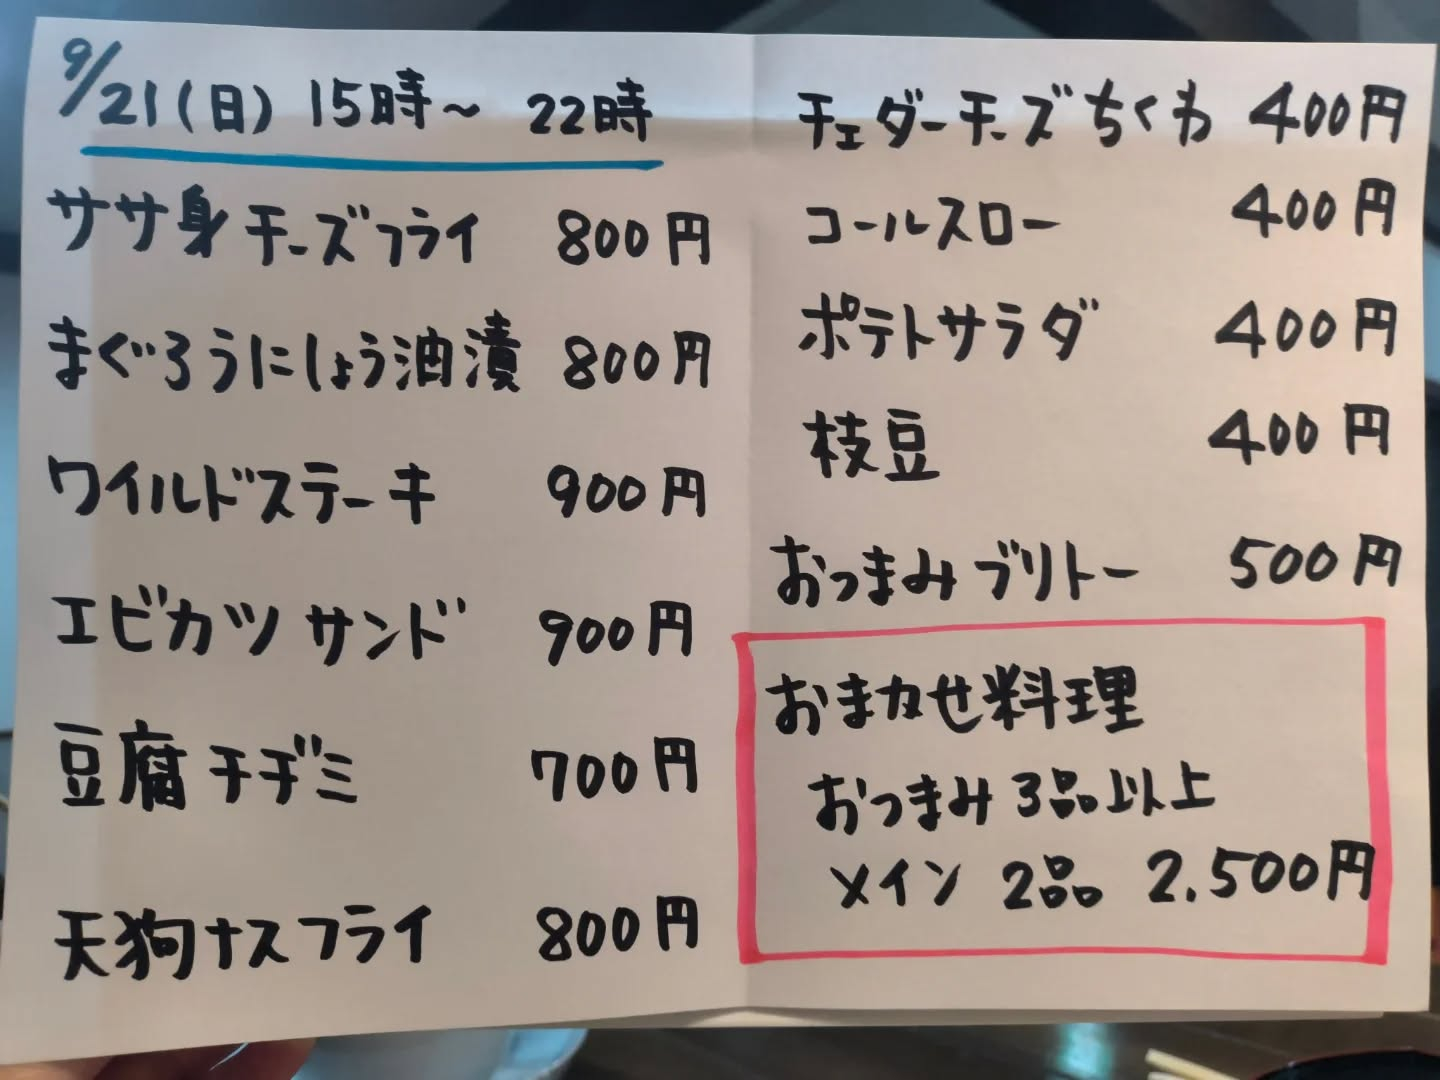 9/21(日) 15時〜 22時
ササ身チーズフライ 800円
まぐろうにしょう油漬 800円
ワイルドステーキ 900円
エビカツサンド 900円
豆腐チヂミ 700円
天狗ナスフライ 800円
チェダーチーズちくわ 400円
コールスロー 400円
ポテトサラダ 400円
枝豆 400円
おつまみブリトー 500円
おまかせ料理
おつまみ3品以上
メイン 2品 2.500円